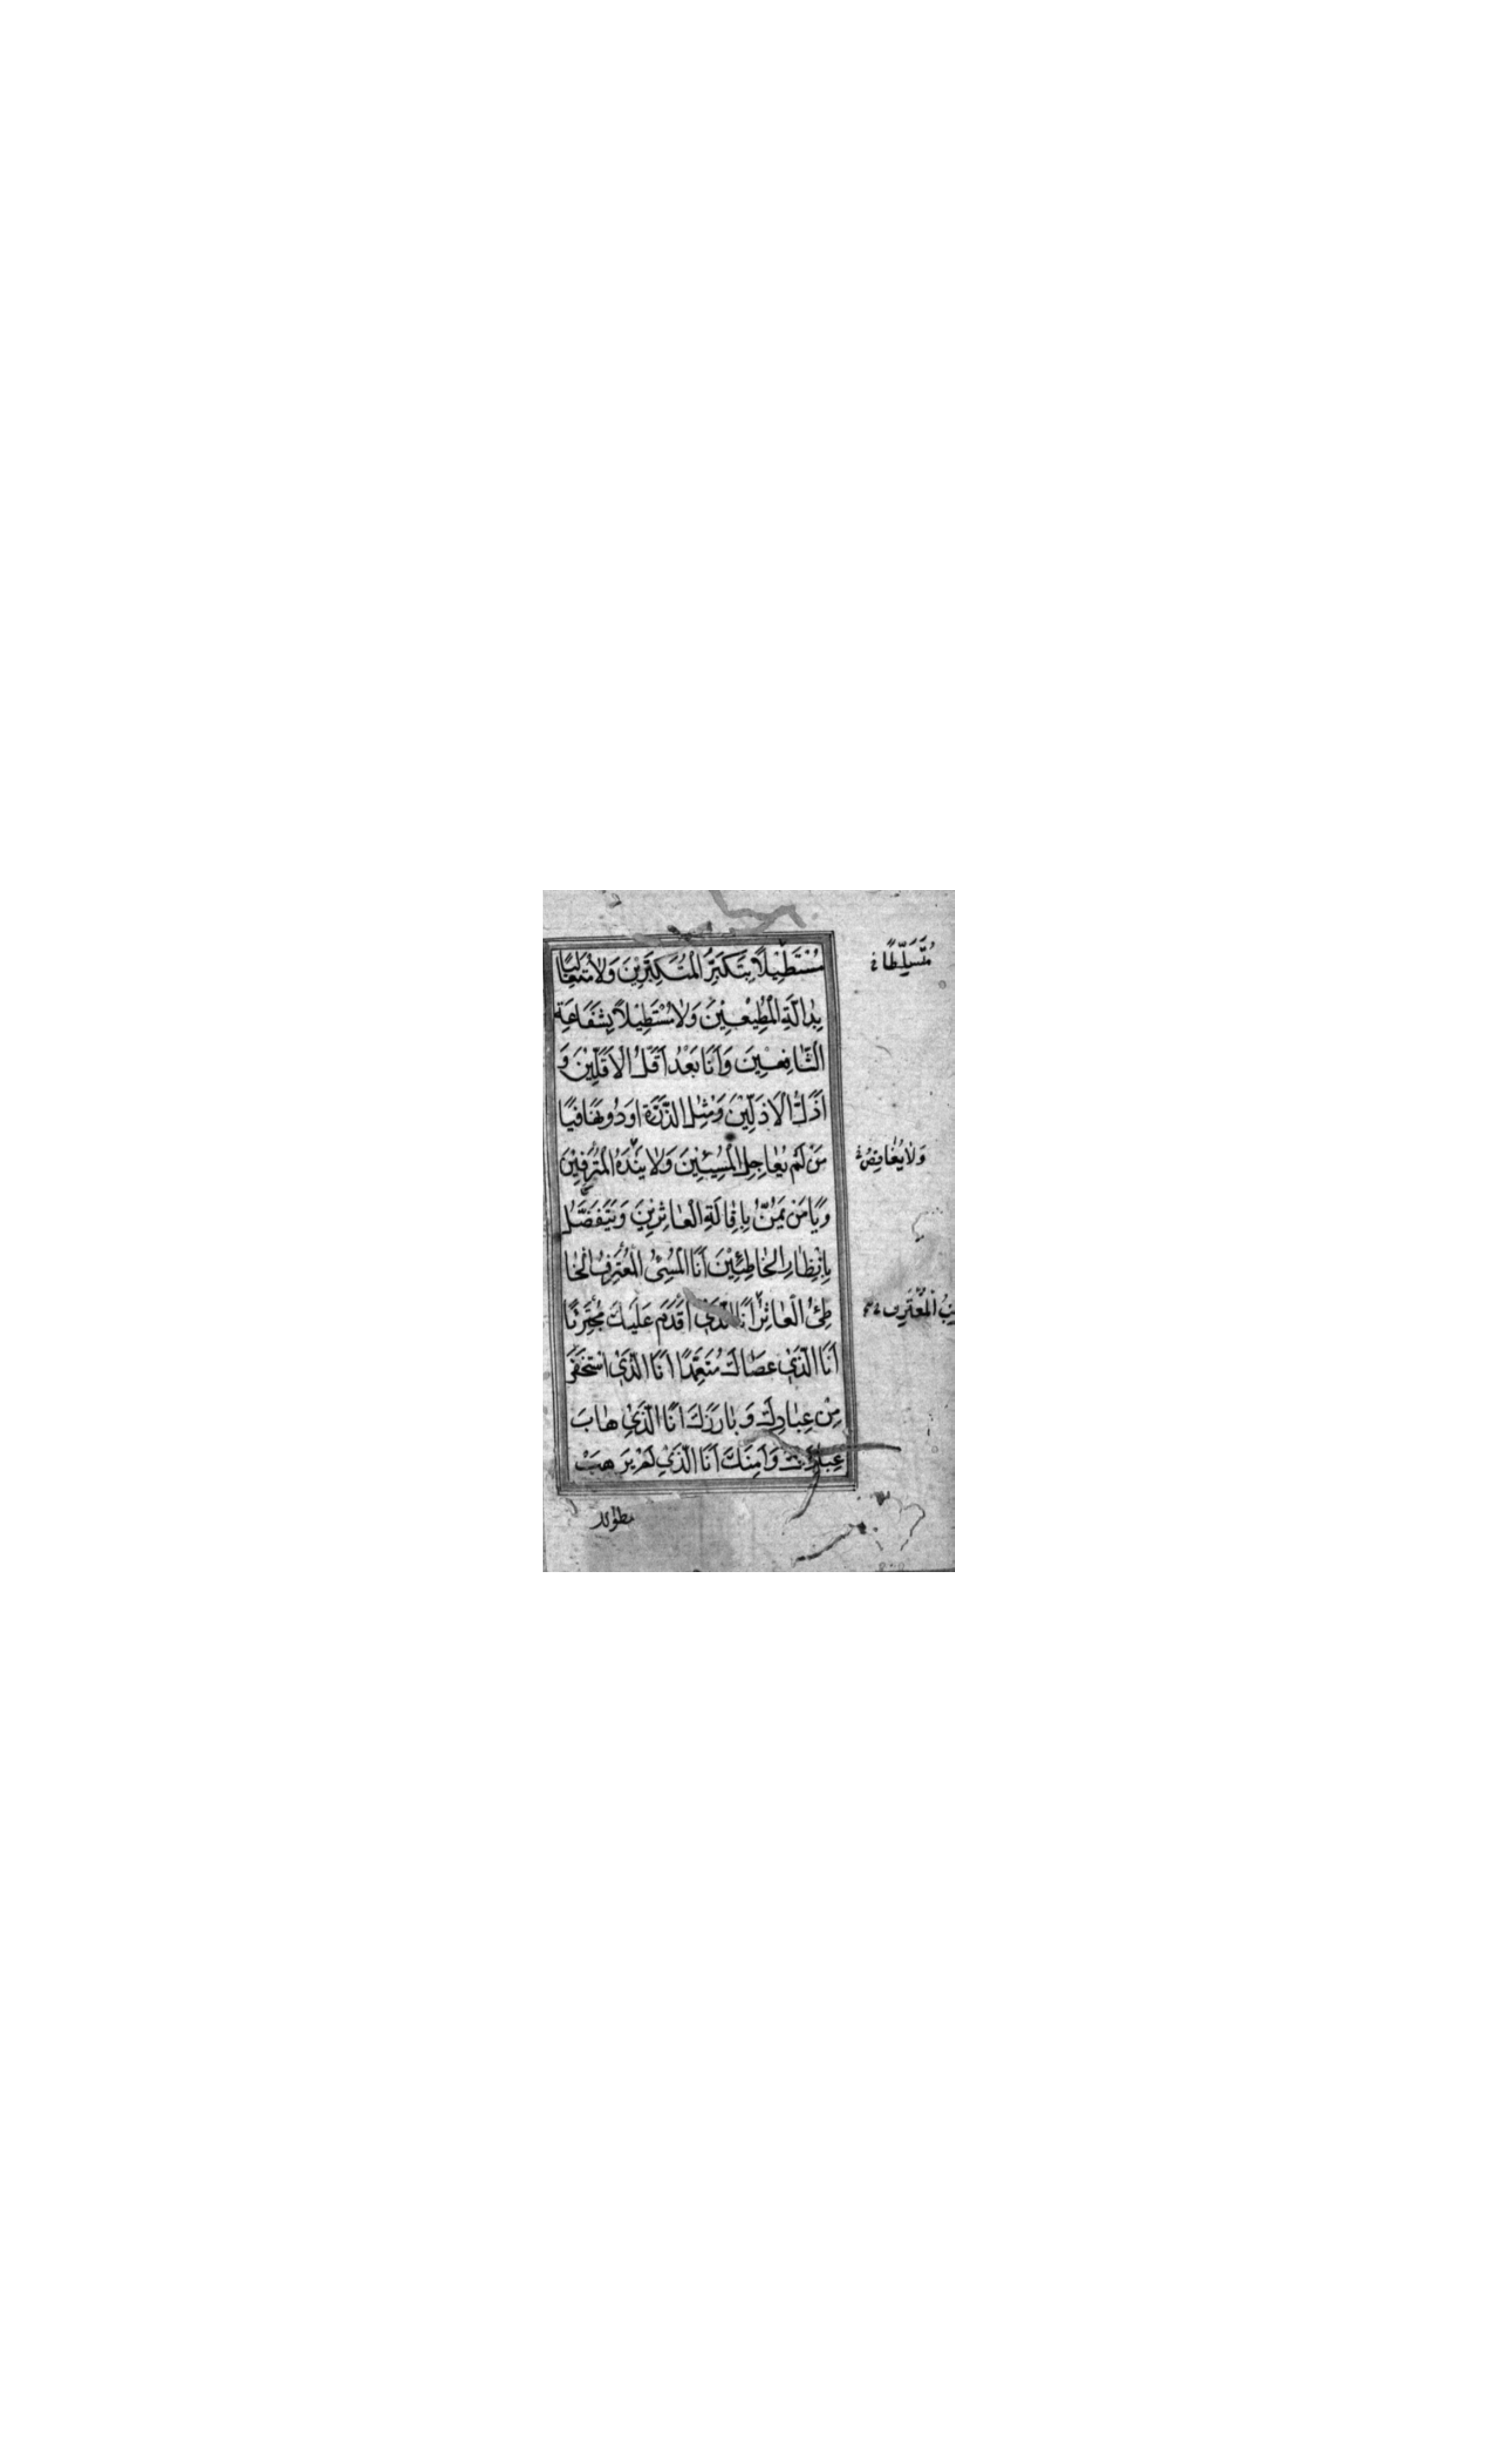 مُسْتَطِيْلاً بِتَكَبُّرِ الْمُتَكَبِّرِيْنَ وَلاٰ مُتَعٰالِيًا
مُتَسَلِّطًا
بِدٰالَّةِ الْمُطِيْعِيْنَ وَلاٰ مُسْتَطِيْلاً بِشَفَاعَةِ
الشّٰافِعِيْنَ وَاَنَا بَعْدُ اَقَلُّ الْاَقَلِّيْنَ وَ
اَذَلُّ الْاَذَلِّيْنَ وَمِثْلُ الذَّرَّةِ اَوْ دُوْنَهَا فَيَا
مَنْ لَمْ يُعٰاجِلِ الْمُسِيْئِيْنَ وَلاٰ يَنْدَهُ الْمُتْرَفِيْنَ
وَلاٰ يُغٰافِصُ
وَيَا مَنْ يَمُنُّ بِاِقٰالَةِ الْعٰاثِرِيْنَ وَيَتَفَضَّلُ
بِاِنْظٰارِ الْخٰاطِئِيْنَ اَنَا الْمُسِيْءُ الْمُعْتَرِفُ الْخٰا
طِئُ الْعٰاثِرُ اَنَا الَّذِيْ اَقْدَمَ عَلَيْكَ مُجْتَرِئًا
الْمُعْتَرِف
اَنَا الَّذِيْ عَصٰاكَ مُتَعَمِّدًا اَنَا الَّذِيْ اسْتَخْفٰى
مِنْ عِبٰادِكَ وَبٰارَزَكَ اَنَا الَّذِيْ هٰابَ
عِبٰادَكَ وَاَمِنَكَ اَنَا الَّذِيْ لَمْ يَرْهَبْ
سطوتك